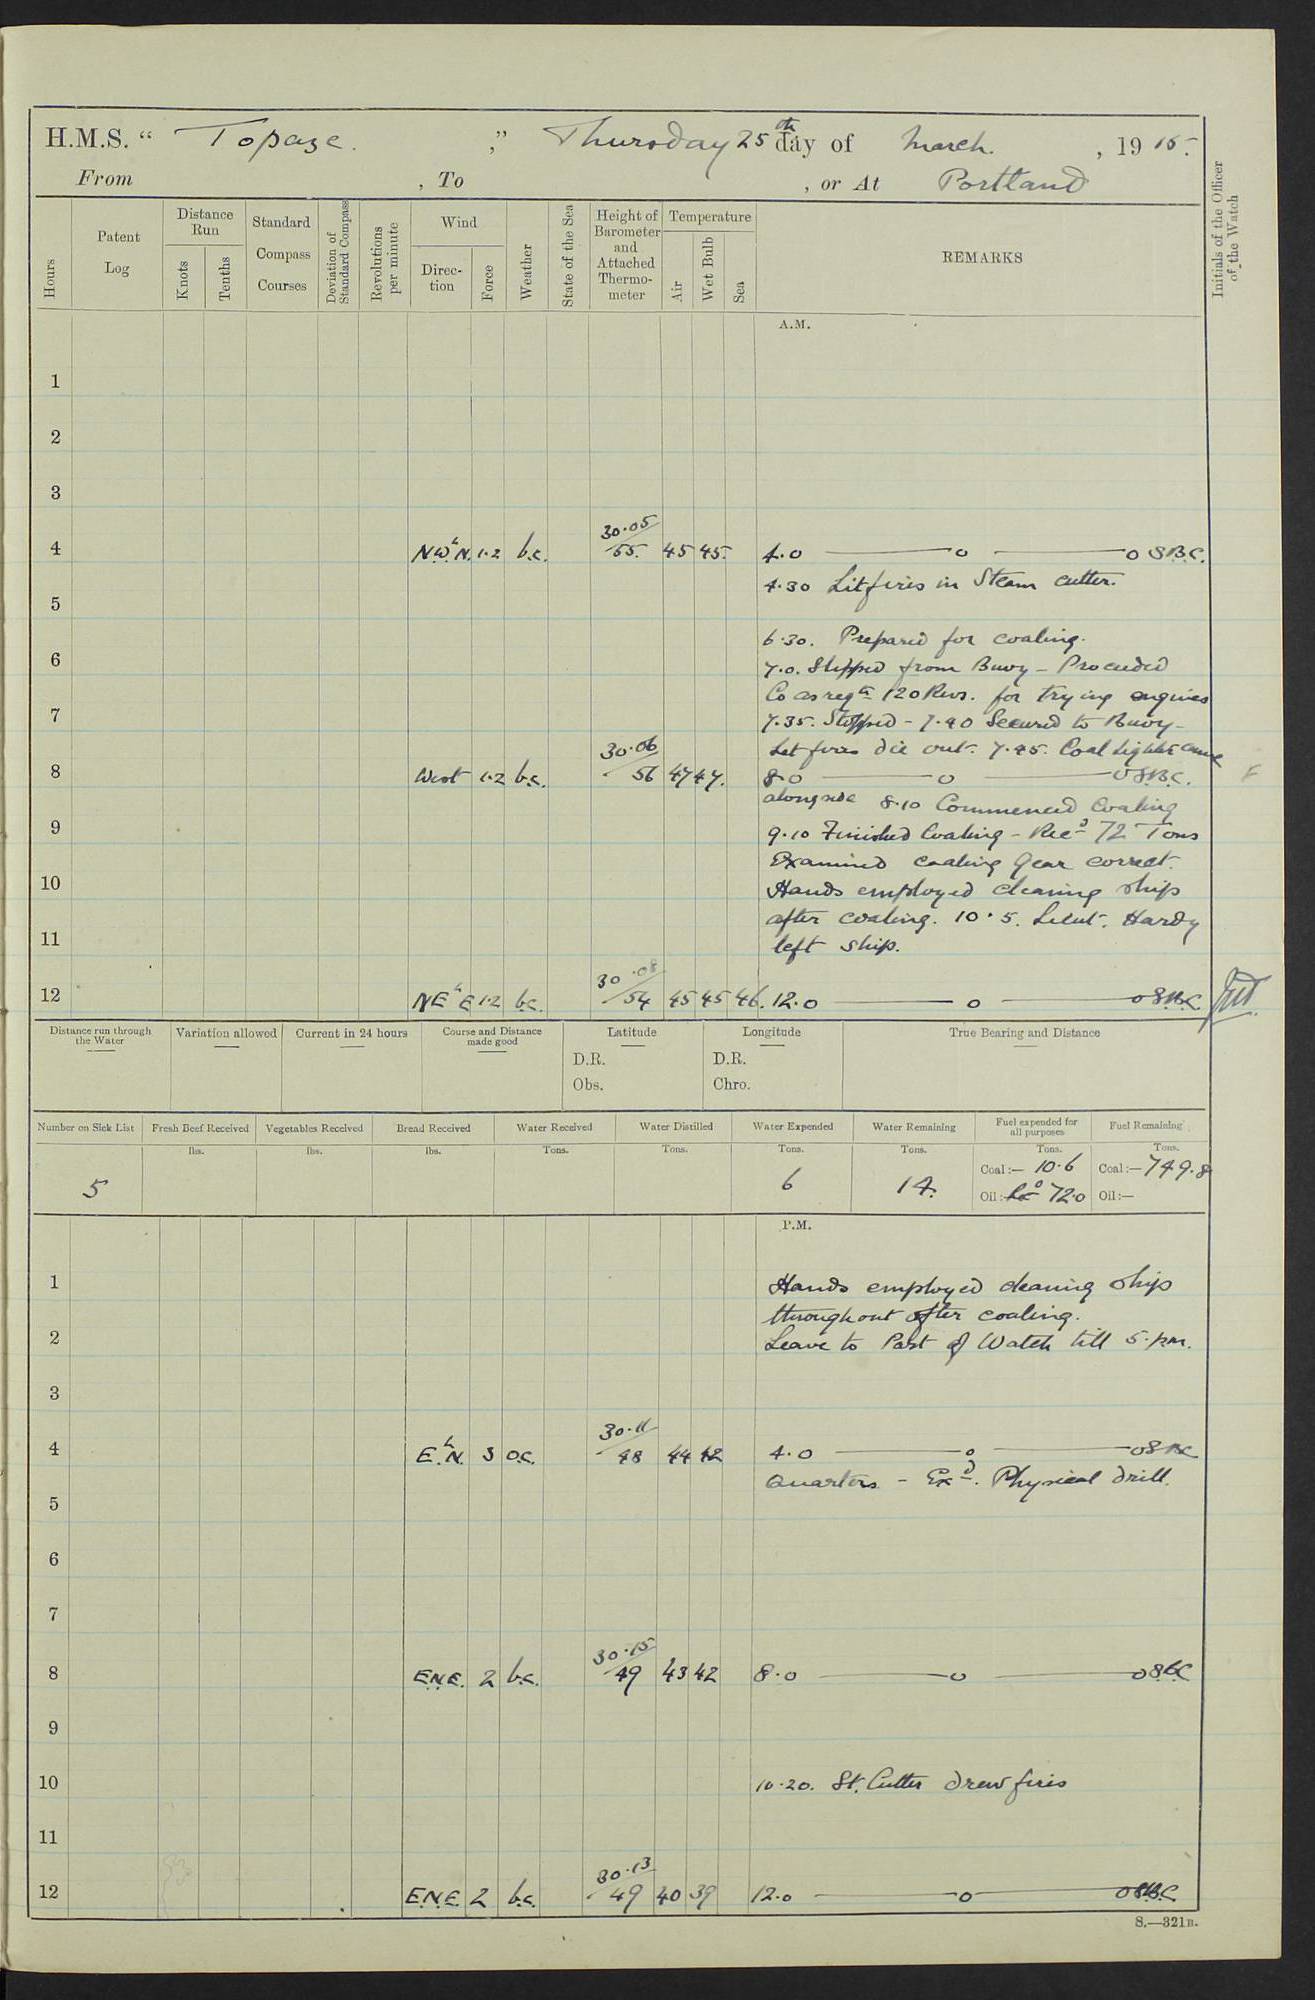 H.M.S. “ Topaze. ,” Thursday 25th day of March. , 1915.
From , To , or At Portland
Hours
Patent Log
Distance Run
Knots
Tenths
Standard Compass Courses
Deviation of Standard Compass
Revolutions per minute
Wind
Direction
Force
Weather
State of the Sea
Height of Barometer and Attached Thermometer
Temperature
Air
Wet Bulb
Sea
REMARKS
Initials of the Officer of the Watch
A.M.
1
2
3
30.05
4 N.W.bN. 1.2 b.c. 55. 45 45. 4.0 o o S.B.C.
4.30 Lit fires in Steam cutter.
5
6.30. Prepared for coaling.
6
7.0. Slipped from Buoy – Proceeded
Co as reqte 120 Revs. for trying engines
7
7.35. Stopped – 7.40 Secured to Buoy –
Let fires die out. 7.45. Coal Lighter came
30.06
8 West 1.2 b.c. 56 47 47. 8.0 o o S.B.C.
alongside 8.10 Commenced Coaling
9
9.10 Finished Coaling – Recd 72 Tons
Examined coaling Gear correct.
10
Hands employed cleaning ship
after coaling. 10.5. Lieut. Hardy
11
left ship.
30.08
12 NEbE 1.2 b.c. 54 45 45 46. 12.0 o o S.B.C
Distance run through the Water
Variation allowed
Current in 24 hours
Course and Distance made good
Latitude
D.R.
Obs.
Longitude
D.R.
Chro.
True Bearing and Distance
Number on Sick List Fresh Beef Received Vegetables Received Bread Received Water Received Water Distilled Water Expended Water Remaining Fuel expended for all purposes Fuel Remaining
lbs. lbs. lbs. Tons. Tons. Tons. Tons. Tons. Tons.
5 6 14. Coal:— 10.6 Coal:— 749.8
Oil: Recd 72.0 Oil:—
P.M.
1 Hands employed cleaning ship
throughout after coaling.
2 Leave to Part of Watch till 5.p.m.
3
30.11
4 E.bN. 3 o.c. 48 44 42 4.0 o o S.B.C
Quarters – Exd. Physical drill.
5
6
7
30.15
8 E.N.E. 2 b.c. 49 43 42 8.0 o o S.B.C
9
10 10.20. St. Cutter drew fires
11
30.13
12 E.N.E. 2 b.c. 49 40 39 12.0 o o S.B.C
S.—321B.